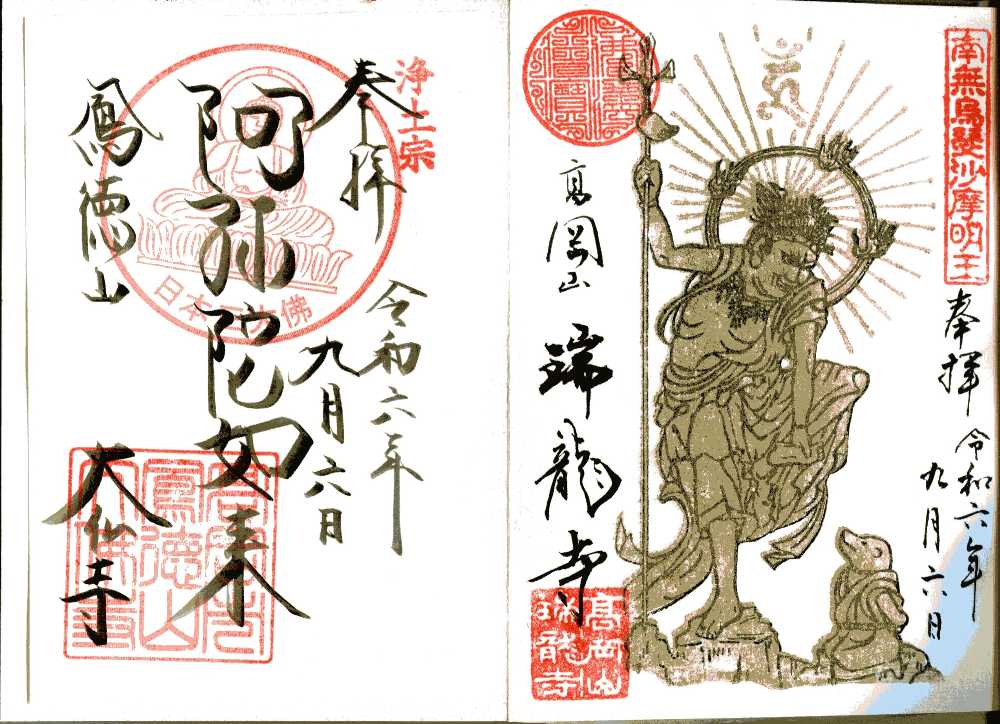 南無烏芻沙摩明王
奉拝
令和六年
九月六日
高岡山
瑞龍寺
高岡山
瑞龍寺
浄土宗
奉拝
令和六年
九月六日
阿弥陀如来
日本三大佛
鳳徳山
大仏寺
鳳徳山
大佛寺